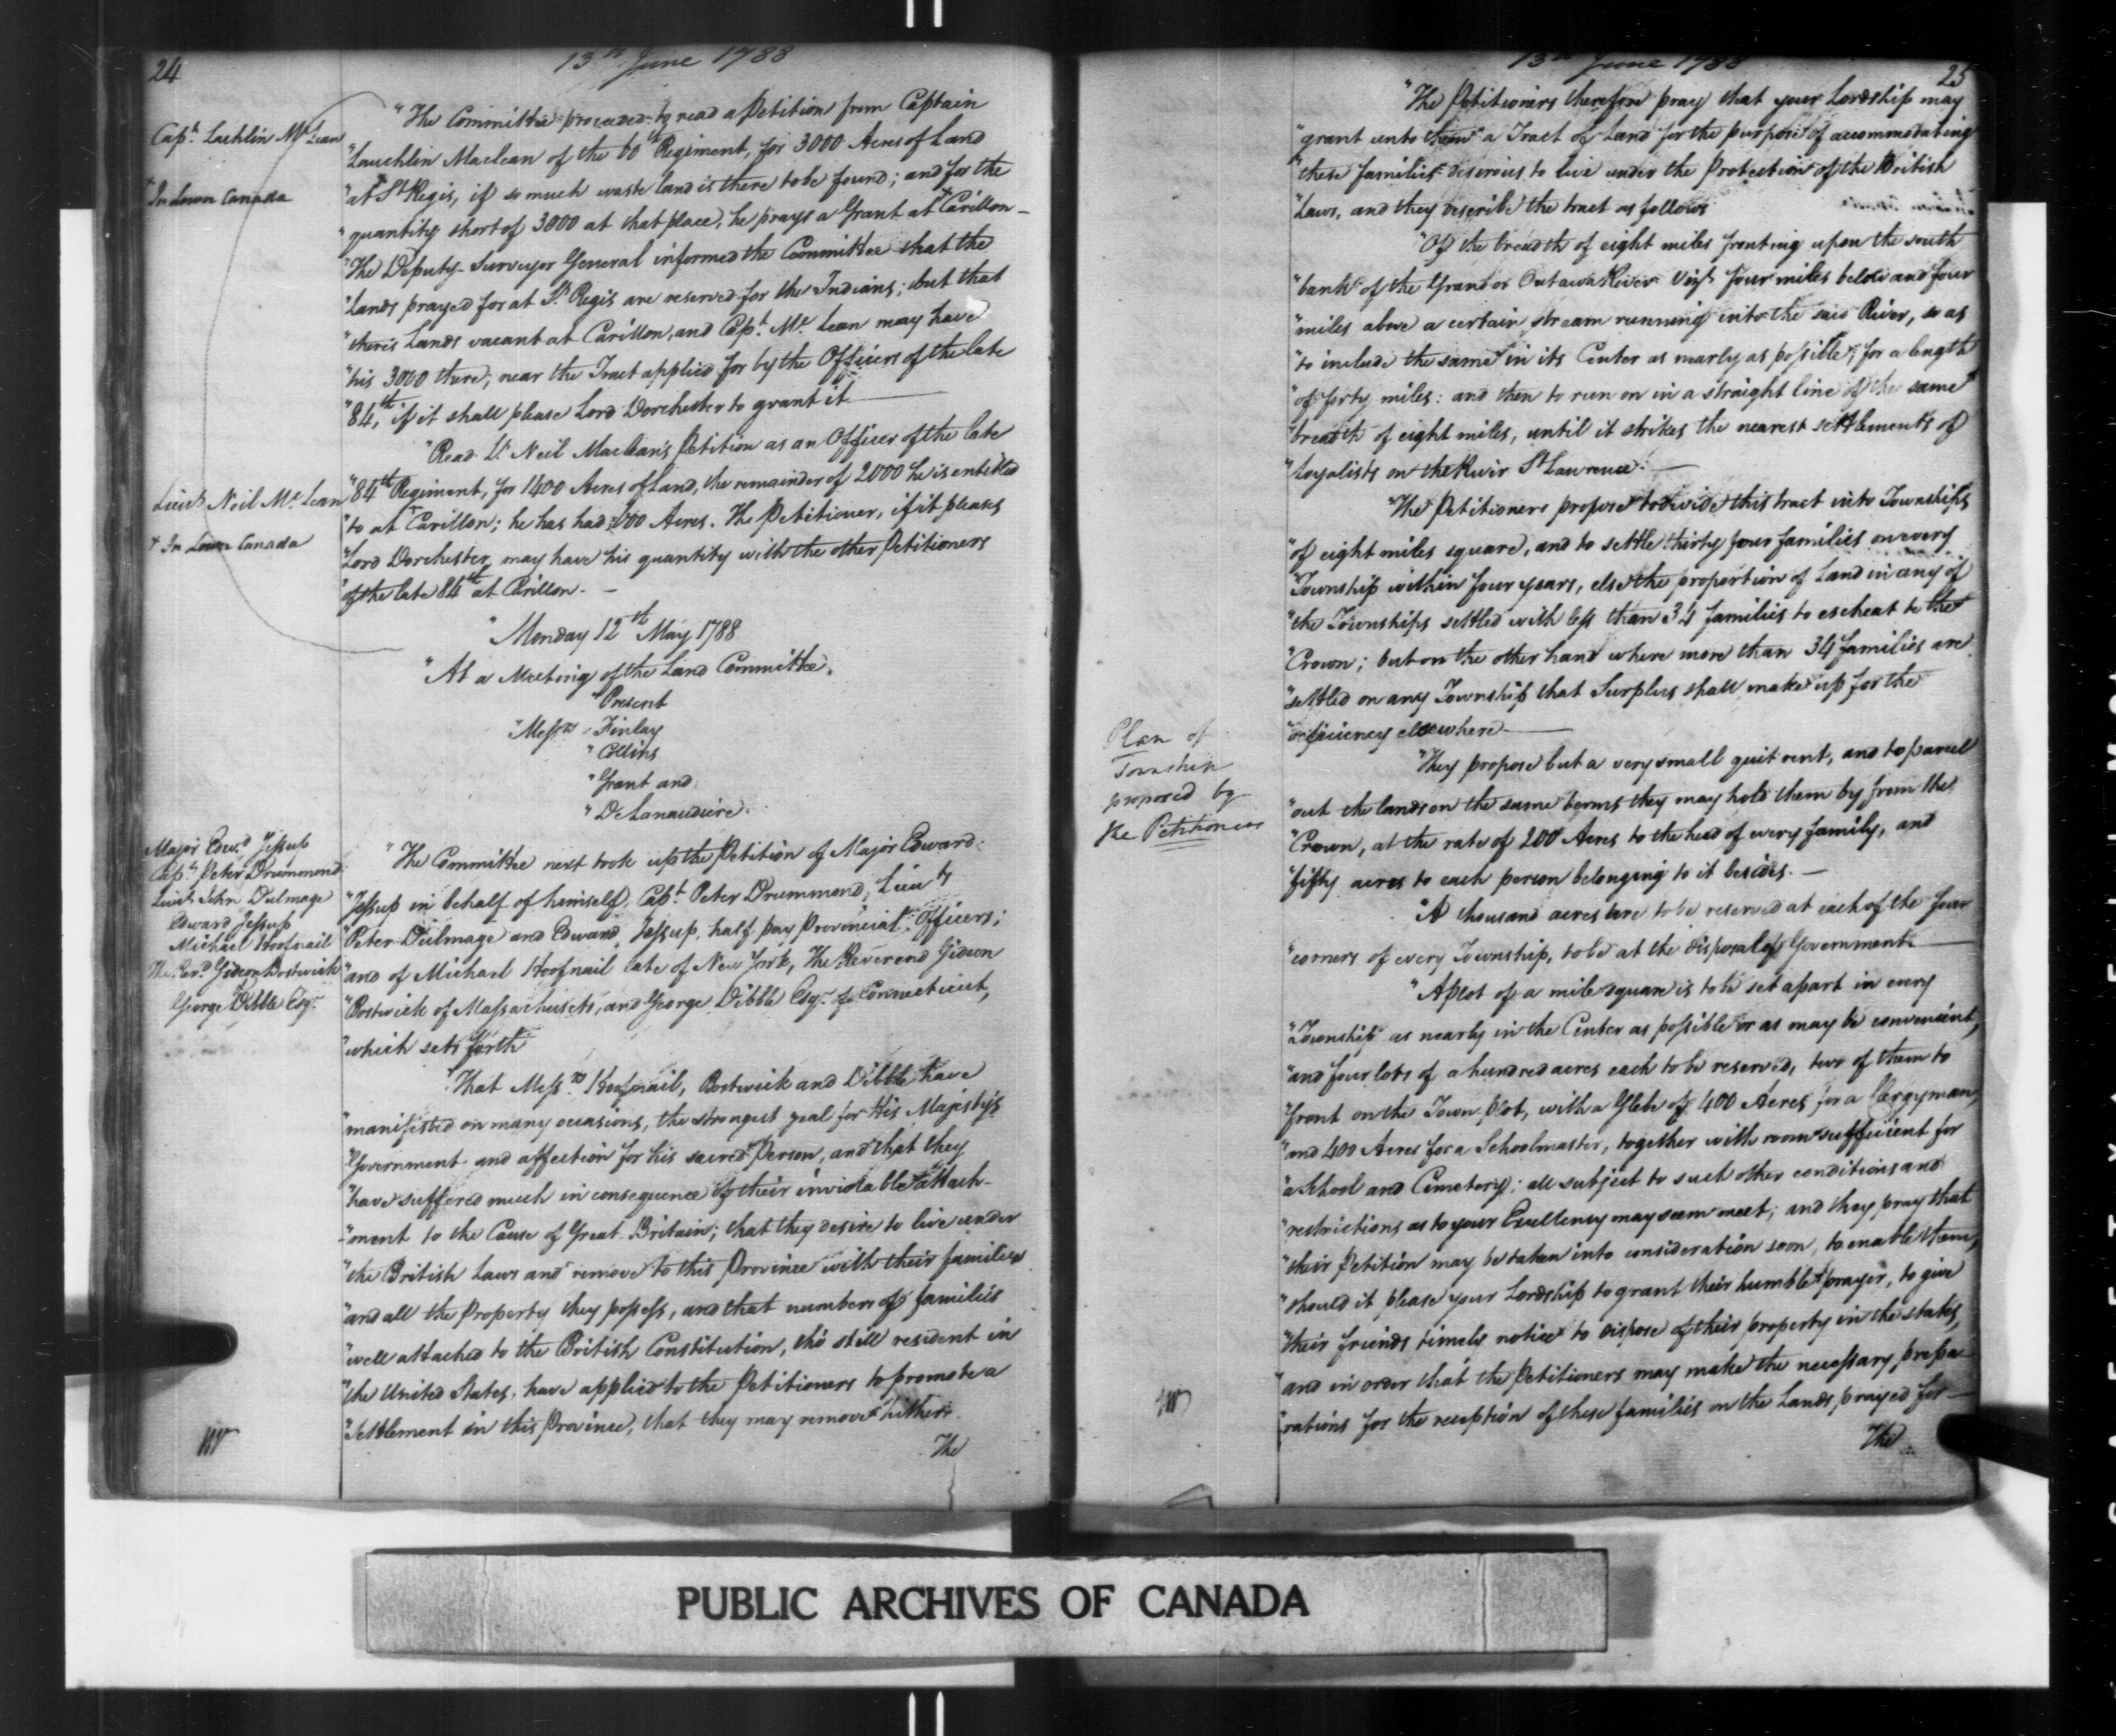 24
13th June 1788
Capt. Lachlin Mc Lean
+ In Lower Canada
"The Committee proceeded to read a Petition from Captain
"Lauchlin Maclean of the 60th Regiment, for 3000 Acres of Land
"at St Regis, if so much waste land is there to be found; and for the
"quantity short of 3000 at that place, he prays a Grant at + Carillon—
"The Deputy-Surveyor General informed the Committee that the
"Lands prayed for at St. Regis are reserved for the Indians; but that
"there's Lands vacant at Carillon, and Capt. Mc. Lean may have
"his 3000 there, near the Tract applied for by the Officers of the late
"84th, if it shall please Lord Dorchester to grant it.—
Lieut. Neil Mc Lean
+ In Lower Canada
"Read Lt. Neil Maclean's Petition as an Officer of the late
"84th Regiment, for 1400 Acres of Land, the remainder of 2000 he is entitled
"to at + Carillon; he has had 600 Acres. The Petitioner, if it pleases
"Lord Dorchester, may have his quantity with the other Petitioners
"of the late 84th at Carillon.—
"Monday 12th May 1788
"At a Meeting of the Land Committee,
"Present
"Messrs. Finlay
"Collins
"Grant and
"De Lanaudiere.
Major Edwd. Jessup
Capt. Peter Drummond
Lieut. John Dulmage
Edward Jessup
Michael Hoofnail
The Revd. Gideon Bostwick
George Dibble Esqr.
"The Committee next took up the Petition of Major Edward
"Jessup in behalf of himself, Capt. Peter Drummond, Lieuts
"Peter Dulmage and Edward Jessup, half pay Provincial Officers;
"and of Michael Hoofnail late of New York, The Reverend Gideon
"Bostwick of Massachusets, and George Dibble Esqr. of Connecticut,
"which sets forth
"That Messrs. Hoofnail, Bostwick and Dibble have
"manifested on many occasions, the strongest zeal for His Majesty's
"Government and affection for his sacred Person, and that they
"have suffered much in consequence of their inviolable attach-
"-ment to the Cause of Great Britain; that they desire to live under
"the British Laws and remove to this Province with their families
"and all the Property they possess, and that numbers of families
"well attached to the British Constitution, tho' still resident in
"the United States, have applied to the Petitioners to promote a
"Settlement in this Province, that they may remove hither.
The
13th June 1788
25
"The Petitioners therefore pray that your Lordship may
"grant unto them a Tract of Land for the purpose of accommodating
"these families desirous to live under the Protection of the British
"Laws, and they describe the tract as follows
"Of the breadth of eight miles fronting upon the south
"bank of the Grand or Outawa River Vizt. four miles below and four
"miles above a certain stream running into the said River, so as
"to include the same in its Center as nearly as possible, for a length
"of forty miles: and then to run on in a straight line of the same
"breadth of eight miles, until it strikes the nearest settlements of
"Loyalists on the River St Lawrence.—
"The Petitioners propose to divide this tract into Townships
"of eight miles square, and to settle thirty four families on every
"Township within four years, else the proportion of Land in any of
"the Townships settled with less than 34 families to escheat to the
"Crown; but on the other hand where more than 34 families are
"settled on any Township that Surplus shall make up for the
"deficiency elsewhere—
Plan of
Township
proposed by
the Petitioners
"They propose but a very small quit rent, and to parcel
"out the lands on the same terms they may hold them by from the
"Crown, at the rate of 200 Acres to the head of every family, and
"fifty acres to each person belonging to it besides.—
"A thousand acres are to be reserved at each of the four
"corners of every Township, to be at the disposal of Government.—
"A plot of a mile square is to be set apart in every
"Township as nearly in the Center as possible or as may be convenient,
"and four lots of a hundred acres each to be reserved, two of them to
"front on the Town plot, with a Glebe of 400 Acres for a Clergyman,
"and 400 Acres for a Schoolmaster, together with room sufficient for
"a School and Cemetery; all subject to such other conditions and
"restrictions as to your Excellency may seem meet; and they pray that
"their Petition may be taken into consideration soon, to enable them,
"should it please your Lordship to grant their humble prayer, to give
"their friends timely notice to dispose of their property in the states,
"and in order that the Petitioners may make the necessary prepa-
"rations for the reception of these families on the Lands prayed for—
The
PUBLIC ARCHIVES OF CANADA